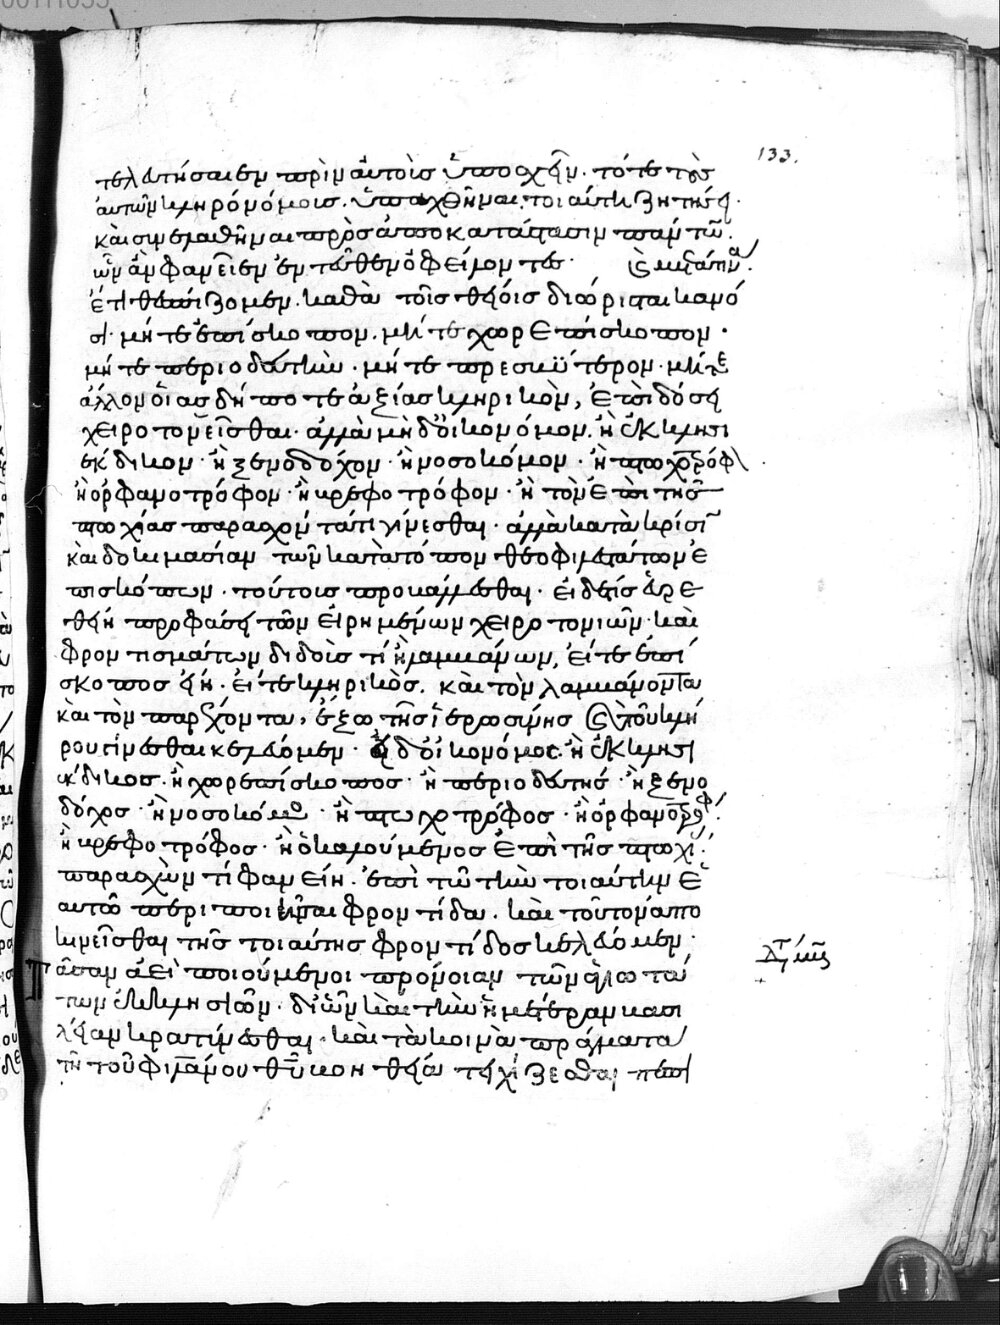 133.
τελευτήσαιεν πρὶν αὐτοὶς ὑποσχεῖν· τότε τοὺς
αὐτῶν κληρονόμοις. ὑπαχθῆναι τοιαύτη ζητήσει·
καὶ συνελαθῆναι πρὸς ἀποκατάστασιν παντῶν
ὧν ἂν φανεῖεν ἐν τούτῳ ὀφείλοντες·
ἔτι θεσπίζομεν. καθὰ τοῖς θείοις διώρισται κανό
σι· μήτε ἐπίσκοπον. μήτε χωρεπίσκοπον·
μήτε περιοδευτὴν· μήτε πρεσβύτερον· μήτε
ἄλλον οἱασδήποτε ἀξίας κληρικὸν, ἐπὶ δόσει
χειροτονεῖσθαι· ἀλλὰ μὴδ' οἰκονόμον. ἢ ἐκκλησι
έκδικον· ἢ ξενοδόχον· ἢ νοσοκόμον· ἢ πτωχοτρόφ
ἢ ὀρφανοτρόφον· ἢ βρεφοτρόφον· ἢ τὸν ἐπὶ τῆς
πτωχίας παρασχόντα τί γίνεσθαι· ἀλλὰ κατὰ κρίσι
καὶ δοκιμασίαν τῶν κατὰ τόπον θεοφιλεστάτων ἐ
πισκόπων· τούτοις προβάλλεσθαι· εἰ δέ τις εὑρε
θείη προφάσει τῶν εἰρημένων χειροτονιῶν· καὶ
φροντισμάτων διδοὶς τί ἢ λαμβάνων, εἴτε ἐπί
σκοπος εἴη· εἴτε κληρικὸς. καὶ τὸν λαμβάνοντα
καὶ τὸν παρέχοντα, ἔξω τῆς ἱερωσύνης καὶ τοῦ κλή
ρου γίνεσθαι κελεύομεν· οἰκονόμος. ἢ ἐκκλησι
έκδικος. ἢ χωρεπίσκοπος· ἢ περιοδευτὴς· ἢ ξενο
δόχος· ἢ νοσοκόμος· ἢ πτωχοτρόφος· ἢ ὀρφανοτρόφ
ἢ βρεφοτρόφος· ἢ ὁ καλούμενος ἐπὶ τῆς πτωχί
παρασχὼν τί φανείη· ἐπὶ τῶ τὴν τοιαύτην ἑ
αυτῶ περιποιῆσαι φροντίδα. καὶ τοῦτον ἀπο
κινεῖσθαι τῆς τοιαύτης φροντίδος κελεύομεν·
Πᾶσαν ἀεὶ ποιούμενοι πρόνοιαν τῶν ἁγιωτά
των ἐκκλησιῶν· δι' ὧν καὶ τὴν ἡμετέραν βασι
λείαν κρατύνεσθαι· καὶ τὰ κοινὰ πράγματα
τῆ τοῦ φιλανου θυ βοηθεία τειχίζεσθαι πεπι